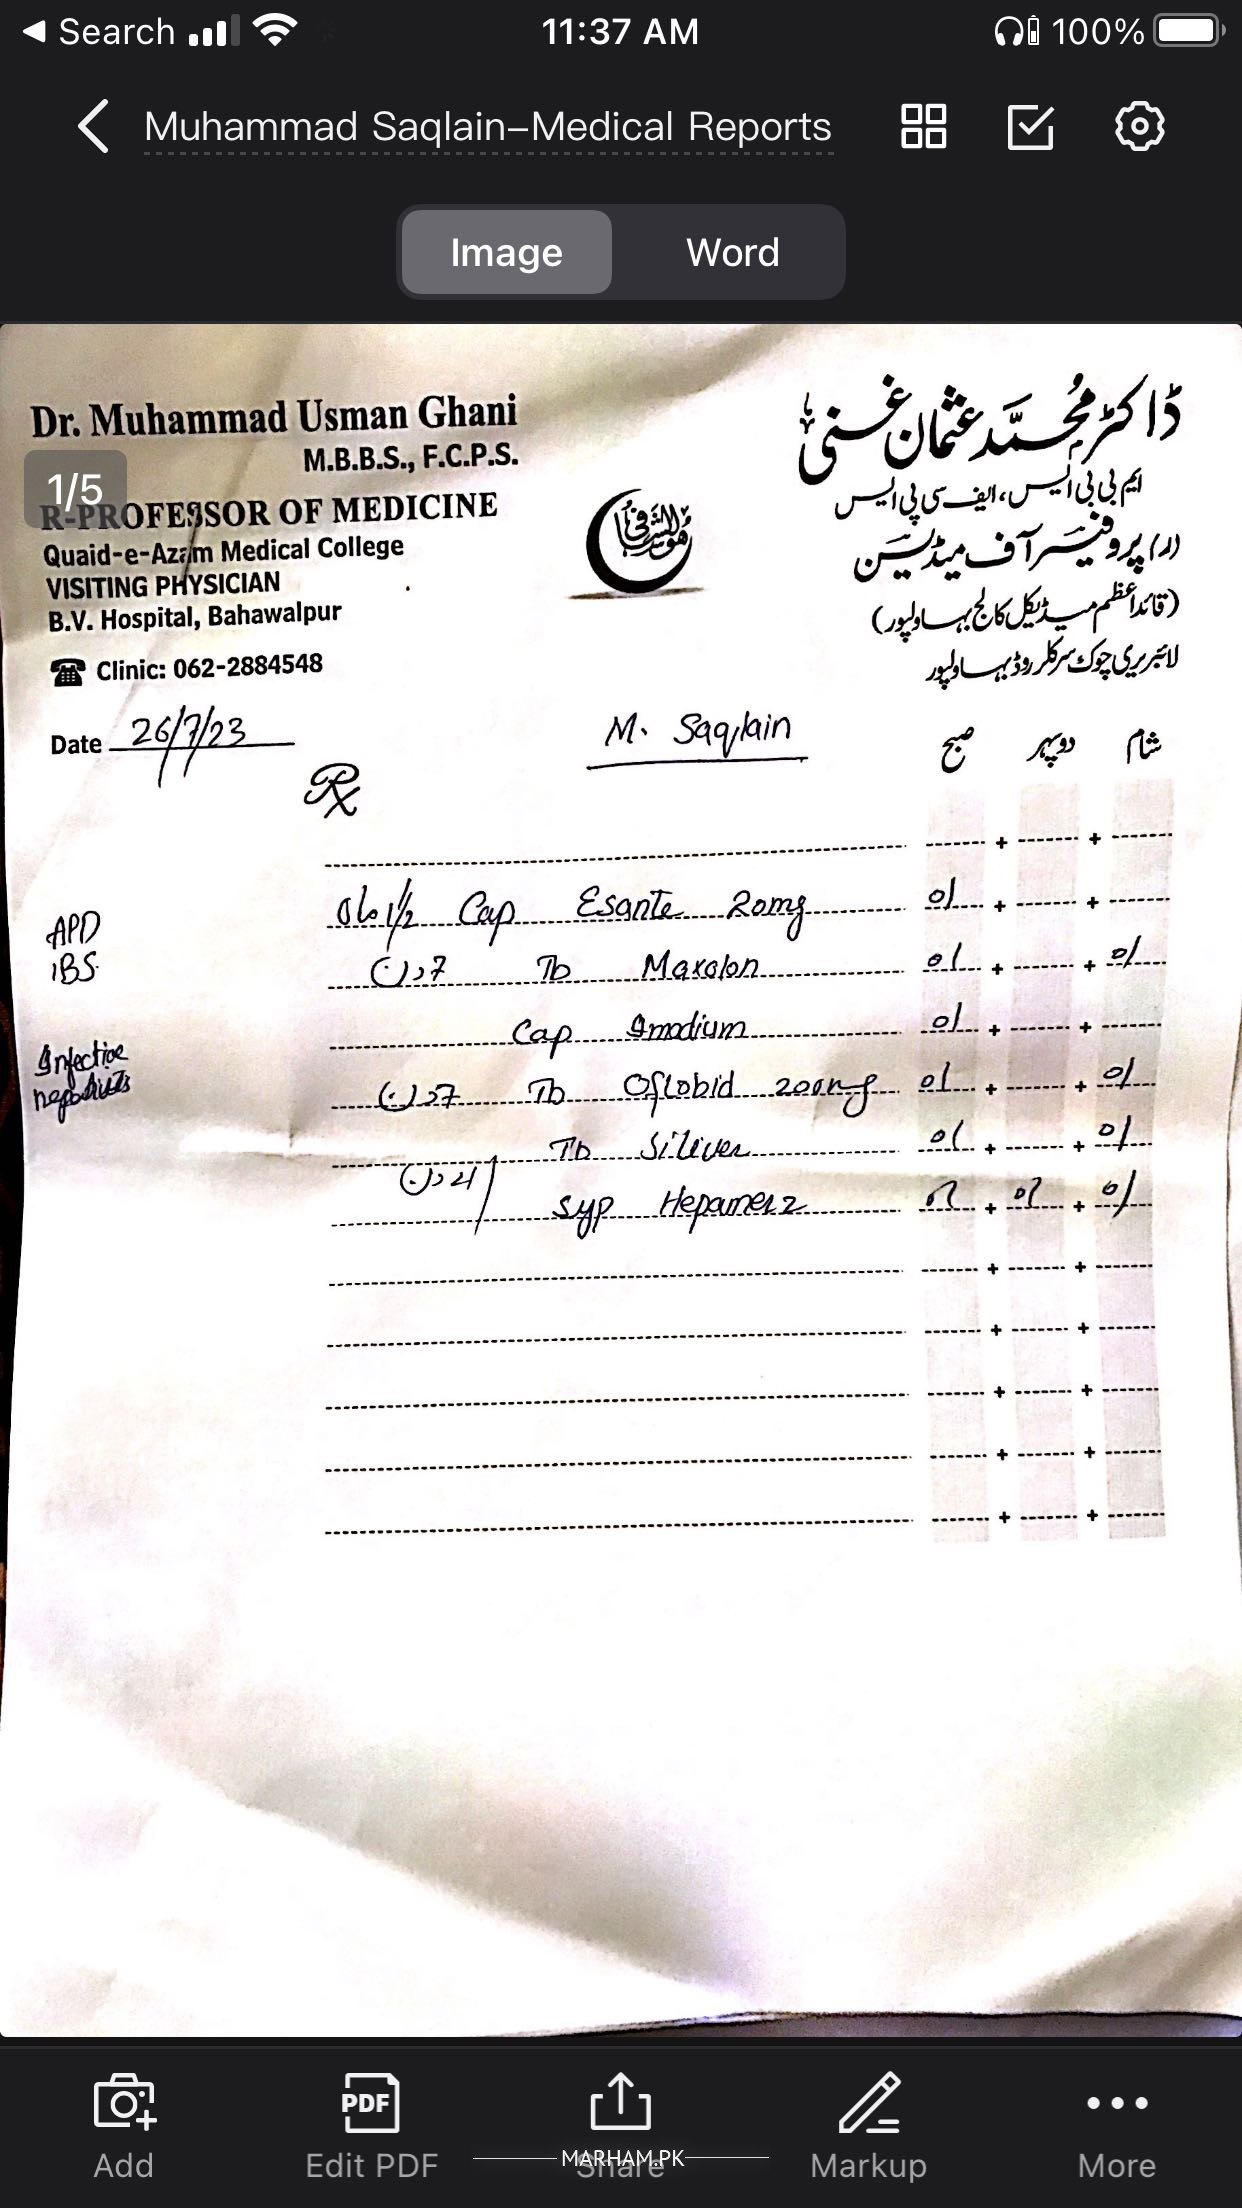 Search
11:37 AM
100%
Muhammad Saqlain-Medical Reports
Image
Word
1/5
Dr. Muhammad Usman Ghani
M.B.B.S., F.C.P.S.
R-PROFESSOR OF MEDICINE
Quaid-e-Azam Medical College
VISITING PHYSICIAN
B.V. Hospital, Bahawalpur
Clinic: 062-2884548
ڈاکٹر محمد عثمان غنی
ایم بی بی ایس، ایف سی پی ایس
(ر) پروفیسر آف میڈیسن
(قائداعظم میڈیکل کالج بہاولپور)
لائبریری چوک سرکلر روڈ بہاولپور
هو الشافی
Date 26/7/23
M. Saqlain
صبح دوپہر شام
Rx
APD
IBS
Infective
hepatitis
1/2 Cap Esante 20mg 01 + +
7 دن Tb Maxolon 01 + + 01
Cap Imodium 01 + +
7 دن Tb Oflobid 200mg 01 + + 01
Tb Siliver 01 + + 01
21 دن Syp Hepamerz + 01 + 01
Add
Edit PDF
Share
MARHAM.PK
Markup
More